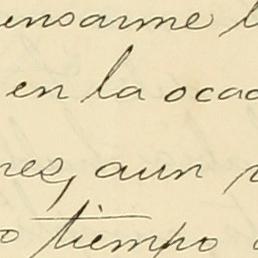 ensarme l
en la ocac
nes, aun
o tiempo